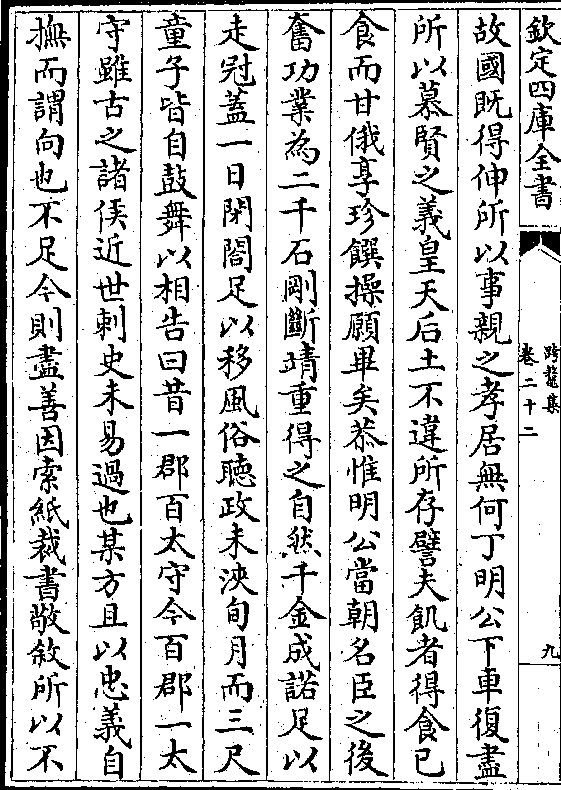 欽定四庫全書
跨鼇集
卷二十二
九
故國既得伸所以事親之孝居無何丁明公下車復盡
所以慕賢之義皇天后土不違所存譬夫飢者得食已
食而甘俄享珍饌操願畢矣恭惟明公當朝名臣之後
奮功業為二千石剛斷靖重得之自然千金成諾足以
走冠蓋一日閉閤足以移風俗聽政未浹旬月而三尺
童子皆自鼓舞以相告曰昔一郡百太守今百郡一太
守雖古之諸侯近世刺史未易過也某方且以忠義自
撫而謂向也不足今則盡善因索紙裁書敬敘所以不